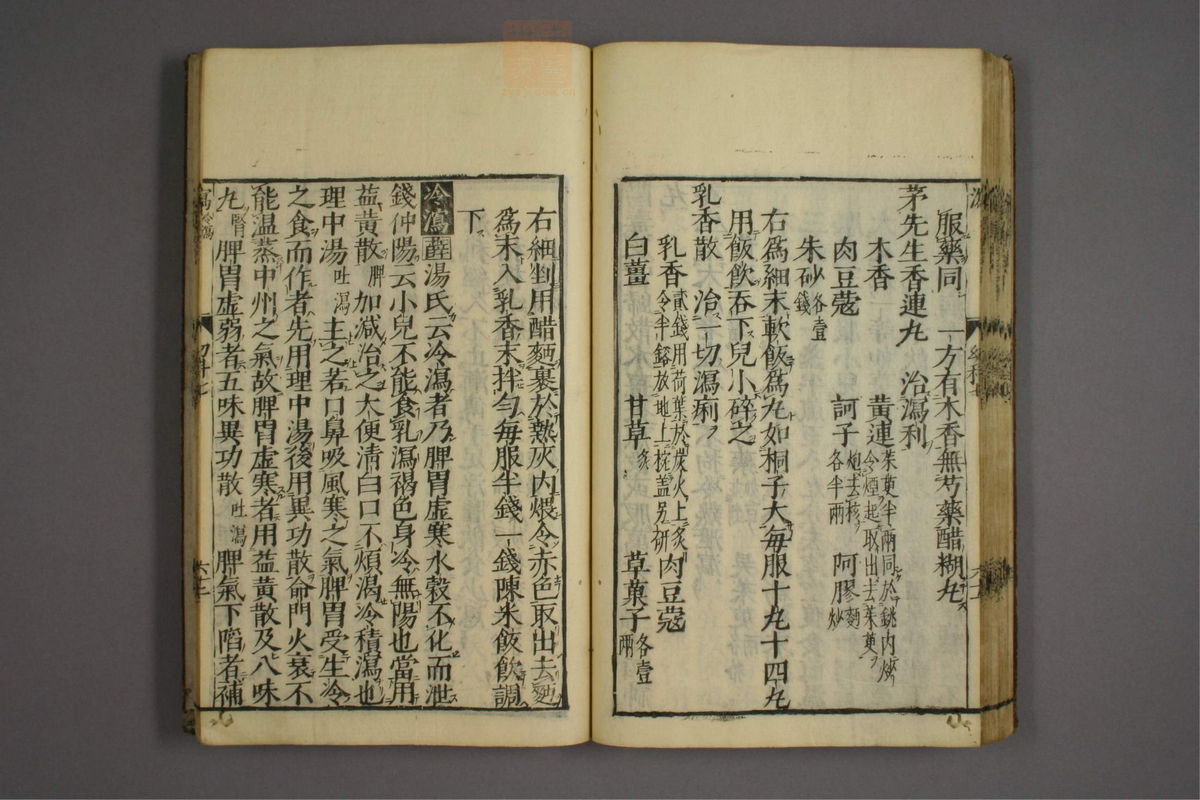 服藥同　一方有木香無芍藥醋糊丸
茅先生香連丸　治瀉利
木香　黃連茱萸半兩同於銚內炒令煙起取出去茱萸
肉豆蔻　訶子炮去核各半兩　阿膠麵炒
朱砂各壹錢
右爲細末軟飯爲丸如桐子大每服十丸十四丸
用飯飲吞下兒小碎之
乳香散　治一切瀉痢
乳香貳錢用荷葉於炭火上炙令半鎔放地上椀蓋另研　肉豆蔻
白薑　甘草炙　草菓子各壹兩
右細剉用醋麵裹於熱灰內煨令赤色取出去麵
爲末入乳香末拌勻每服半錢一錢陳米飯飲調
下
冷瀉　湯氏云冷瀉者乃脾胃虛寒水穀不化而泄
錢仲陽云小兒不能食乳瀉褐色身冷無陽也當用
益黃散脾加減治之大便清白口不煩渴冷積瀉也
理中湯吐瀉主之若口鼻吸風寒之氣脾胃受生冷
之食而作者先用理中湯後用異功散命門火衰不
能溫蒸中州之氣故脾胃虛寒者用益黃散及八味
丸腎脾胃虛弱者五味異功散吐瀉脾氣下陷者補
瀉冷瀉　幼科七　六十二